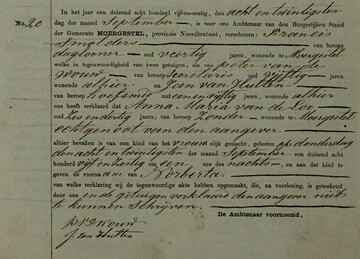 In het jaar een duizend acht honderd vijf-en-zestig, den acht en twintigsten
No. 20 der maand September, is voor ons Ambtenaar van den Burgerlijken Stand
der Gemeente MOERGESTEL, provincie Noordbrabant, verschenen: Francis
Smolders van beroep
daglooner oud veertig jaren, wonende te Moergestel
welke in tegenwoordigheid van twee getuigen, als van Peter van de
Wouw van beroep secretaris oud vijftig jaren,
wonende alhier en Jan van Hulten
van beroep oud een en vijftig jaren, wonende alhier
ons heeft verklaard dat Anna Maria van de Loo
oud zes en dertig jaren, van beroep zonder wonende te Moergestel
echtgenoot van den aangever
alhier bevallen is van een kind van het vrouwelijk geslacht, geboren op donderdag
den acht en twintigsten der maand September een duizend acht
honderd vijf en zestig en een ure des nachts, en aan dat kind te
geven de voornaam van Norberta.
van welke verklaring wij de tegenwoordige akte hebben opgemaakt, die, na voorlezing, is geteekend
door ons en de getuigen verklarende den aangever niet
te kunnen schrijven.
De Ambtenaar voornoemd,
P. V. D. Wouw
J. van Hulten